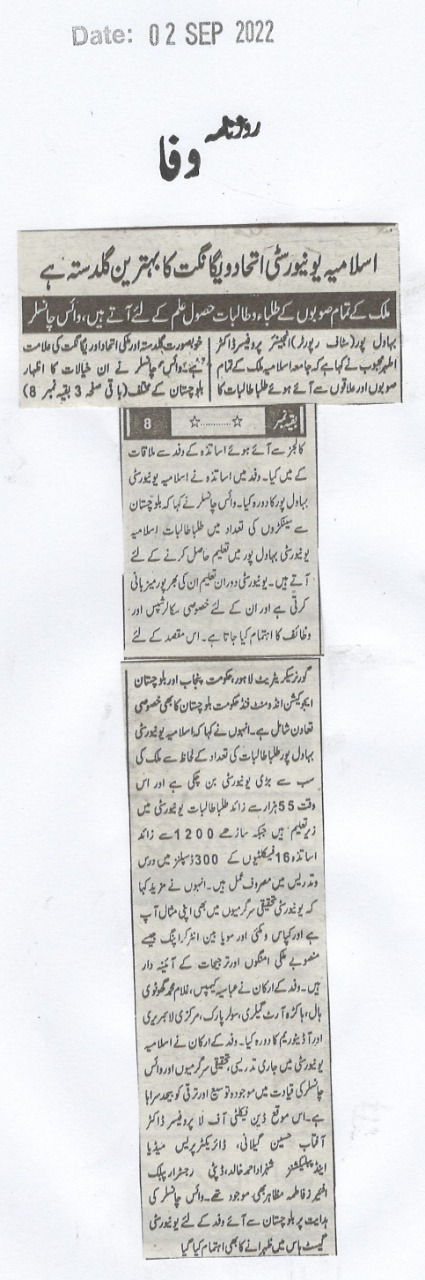 Date: 02 SEP 2022
روزنامہ
وفا
اسلامیہ یونیورسٹی اتحاد ویگانگت کا بہترین گلدستہ ہے
ملک کے تمام صوبوں کے طلباء و طالبات حصول علم کے لئے آتے ہیں، وائس چانسلر
بہاول پور (سٹاف رپورٹر) انجینئر پروفیسر ڈاکٹر
اطہر محبوب نے کہا ہے کہ جامعہ اسلامیہ ملک کے تمام
صوبوں اور علاقوں سے آئے ہوئے طلباطالبات کا
خوبصورت گلدستہ اور ملی اتحاد اور یگانگت کی علامت
ہے۔ وائس چانسلر نے ان خیالات کا اظہار
بلوچستان کے مختلف (باقی صفحہ 3 بقیہ نمبر 8)
بقیہ نمبر ☆..........☆ 8
کالجز سے آئے ہوئے اساتذہ کے وفد سے ملاقات
کے میں کیا۔ وفد میں اساتذہ نے اسلامیہ یونیورسٹی
بہاول پور کا دورہ کیا۔ وائس چانسلر نے کہا کہ بلوچستان
سے سینکڑوں کی تعداد میں طلباطالبات اسلامیہ
یونیورسٹی بہاول پور میں تعلیم حاصل کرنے کے لئے
آتے ہیں۔ یونیورسٹی دوران تعلیم ان کی بھرپور میزبانی
کرتی ہے اور ان کے لئے خصوصی سکالرشپس اور
وظائف کا اہتمام کیا جاتا ہے۔ اس مقصد کے لئے
گورنر سیکریٹریٹ لاہور، حکومت پنجاب اور بلوچستان
ایجوکیشن انڈومنٹ فنڈ حکومت بلوچستان کا بھی خصوصی
تعاون شامل ہے۔ انہوں نے کہا کہ اسلامیہ یونیورسٹی
بہاول پور طلباطالبات کی تعداد کے لحاظ سے ملک کی
سب سے بڑی یونیورسٹی بن چکی ہے اور اس
وقت 55 ہزار سے زائد طلباطالبات یونیورسٹی میں
زیر تعلیم ہیں جبکہ ساڑھے 1200 سے زائد
اساتذہ 16 فیکلٹیوں کے 300 ڈسپلنز میں درس
وتدریس میں مصروف عمل ہیں۔ انہوں نے مزید کہا
کہ یونیورسٹی تحقیقی سرگرمیوں میں بھی اپنی مثال آپ
ہے اور کپاس و مکئی اور سویا بین انٹر کراپنگ جیسے
منصوبے ملکی امنگوں اور ترجیحات کے آئینہ دار
ہیں۔ وفد کے ارکان نے عباسیہ کیمپس، غلام محمد گھوٹوی
ہال، ہاکڑہ آرٹ گیلری، سولر پارک، مرکزی لائبریری
اور آڈیٹوریم کا دورہ کیا۔ وفد کے ارکان نے اسلامیہ
یونیورسٹی میں جاری تدریسی، تحقیقی سرگرمیوں اور وائس
چانسلر کی قیادت میں موجودہ توسیع اور ترقی کو بیحد سراہا
ہے۔ اس موقع ڈین فیکلٹی آف لا پروفیسر ڈاکٹر
آفتاب حسین گیلانی، ڈائریکٹر پریس میڈیا
اینڈ پبلیکیشنز شہزاد احمد خالد، ڈپٹی رجسٹرار پبلک
افیئرز فاطمہ مظاہر بھی موجود تھے۔ وائس چانسلر کی
ہدایت پر بلوچستان سے آئے وفد کے لئے یونیورسٹی
گیسٹ ہاس میں ظہرانے کا بھی اہتمام کیا گیا